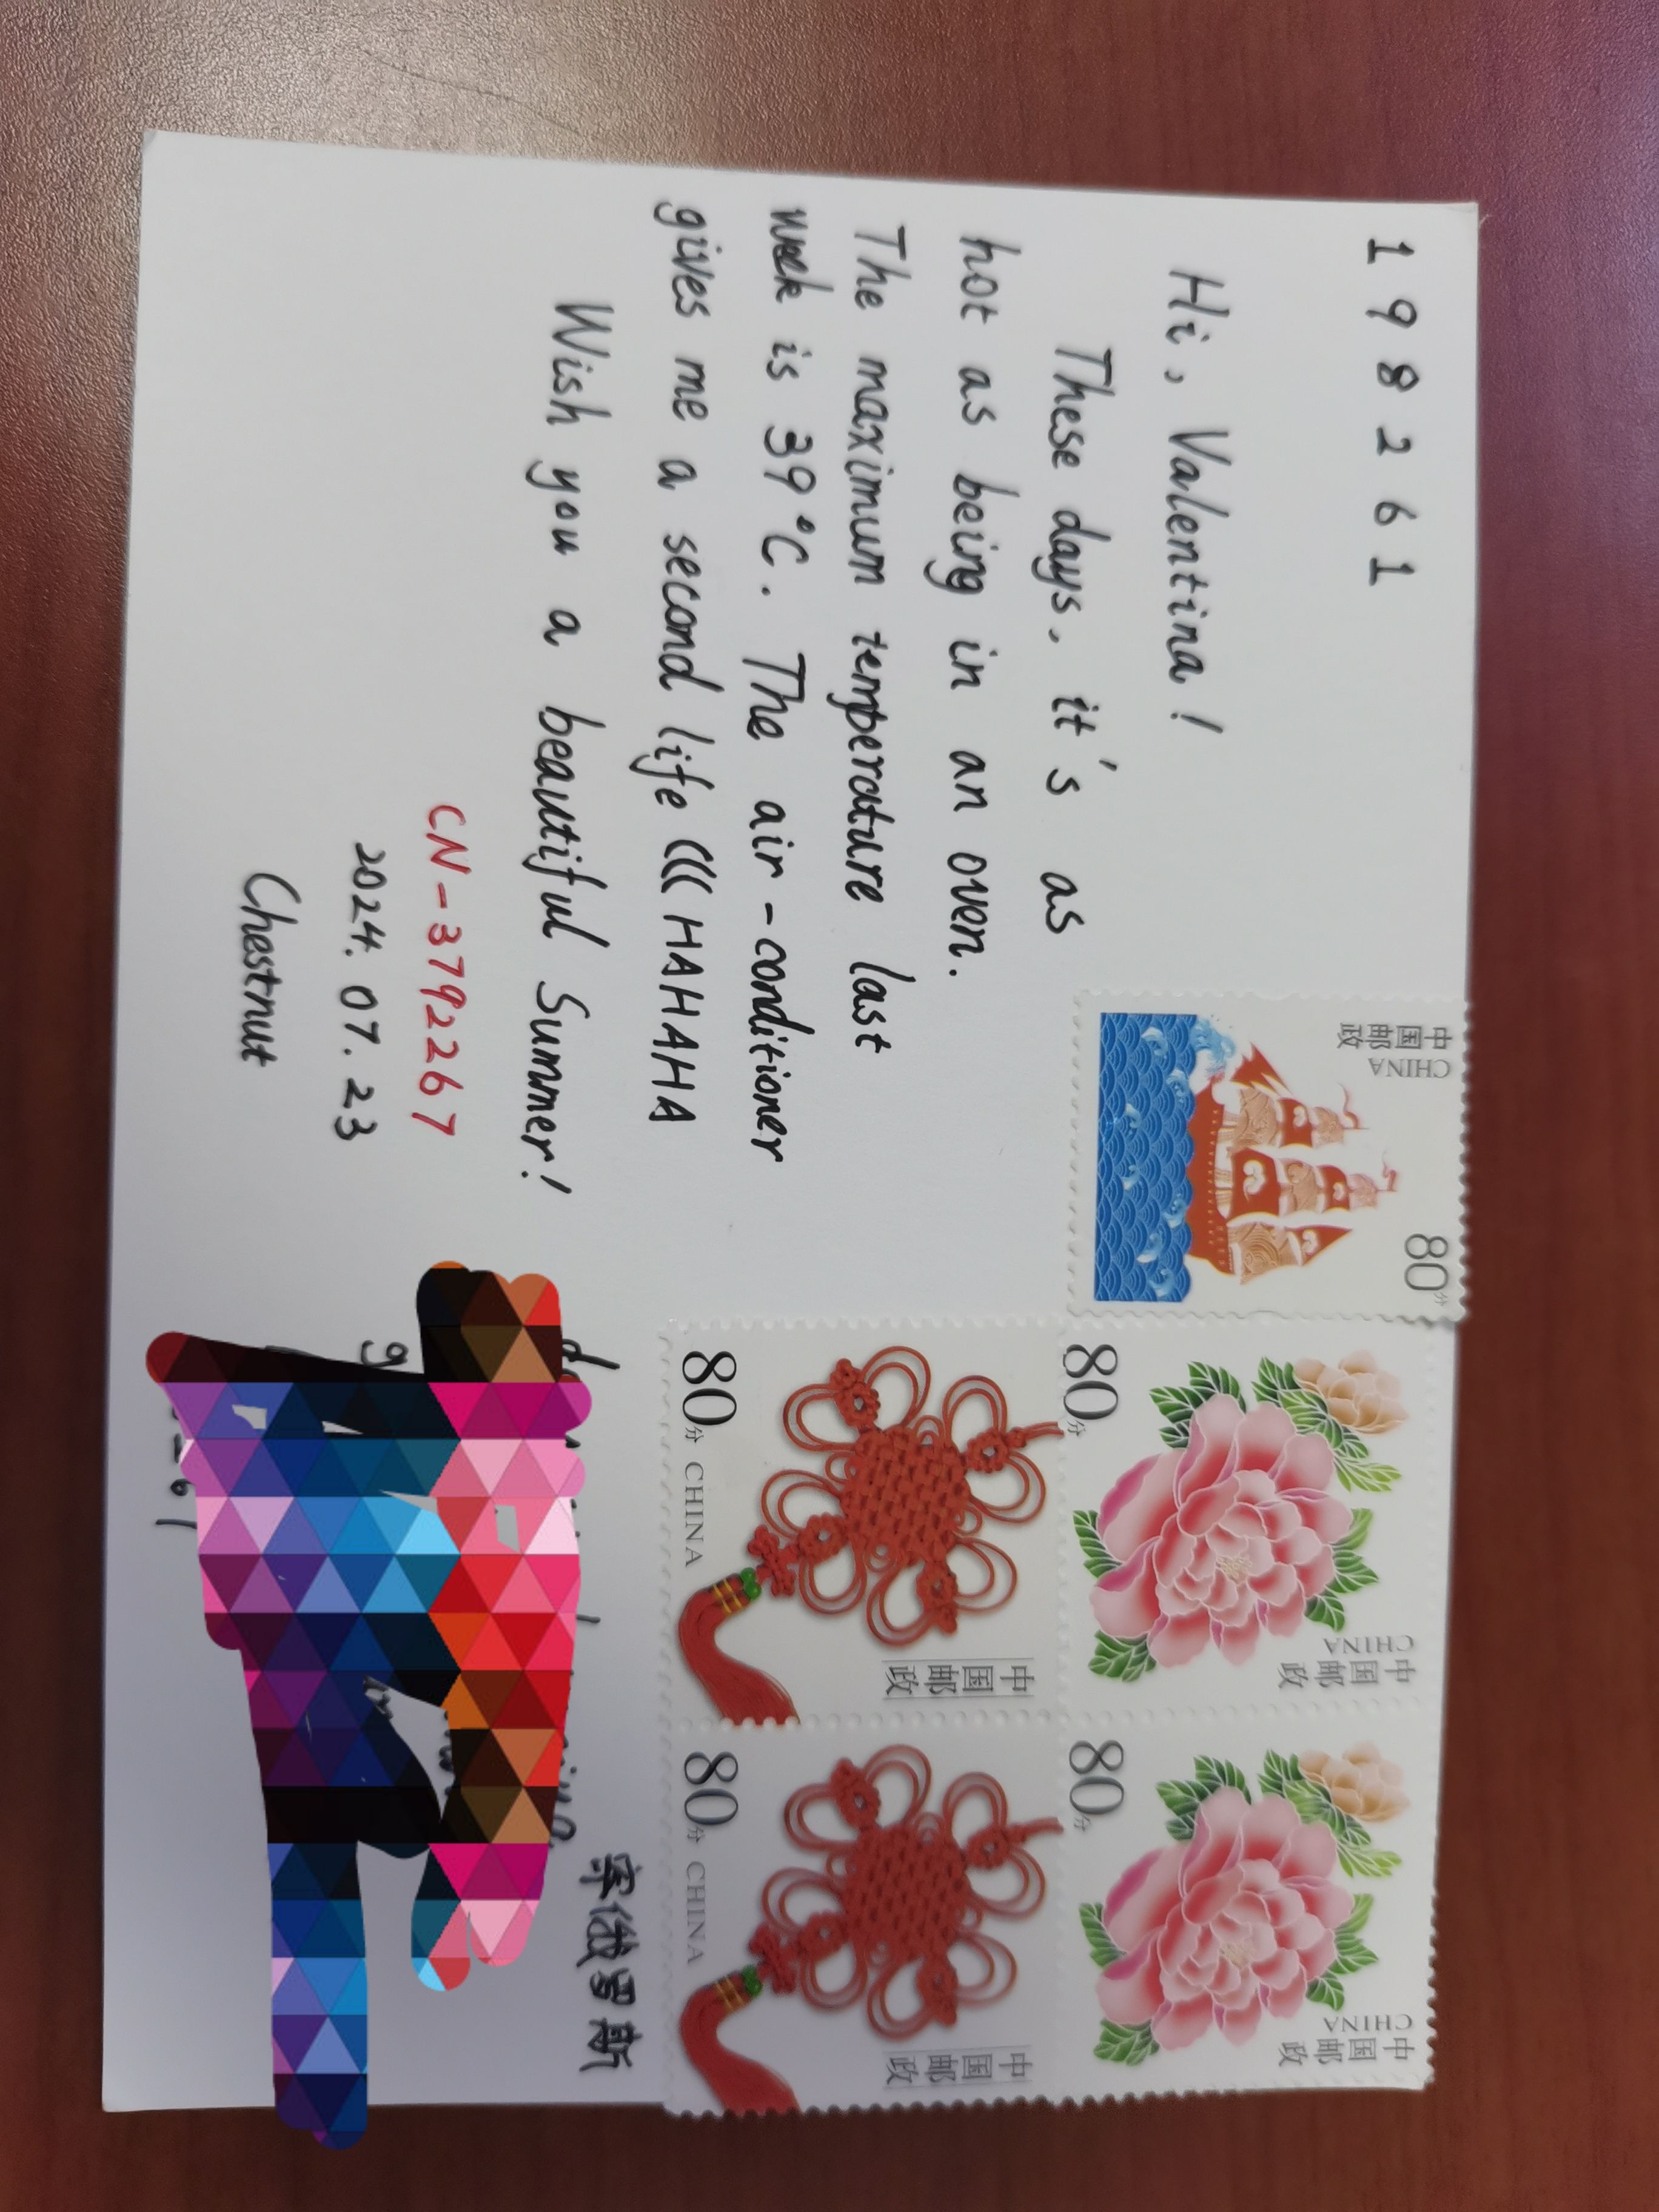 1 9 8 2 6 1
Hi, Valentina!
These days, it's as
hot as being in an oven.
The maximum temperature last
week is 39°C. The air-conditioner
gives me a second life (((HAHAHAHA
Wish you a beautiful Summer!
CN-3792267
2024. 07. 23
Chestnut
中国邮政
CHINA
80分
80分
CHINA
中国邮政
80分
CHINA
中国邮政
80分 CHINA
中国邮政
80分 CHINA
中国邮政
俄罗斯